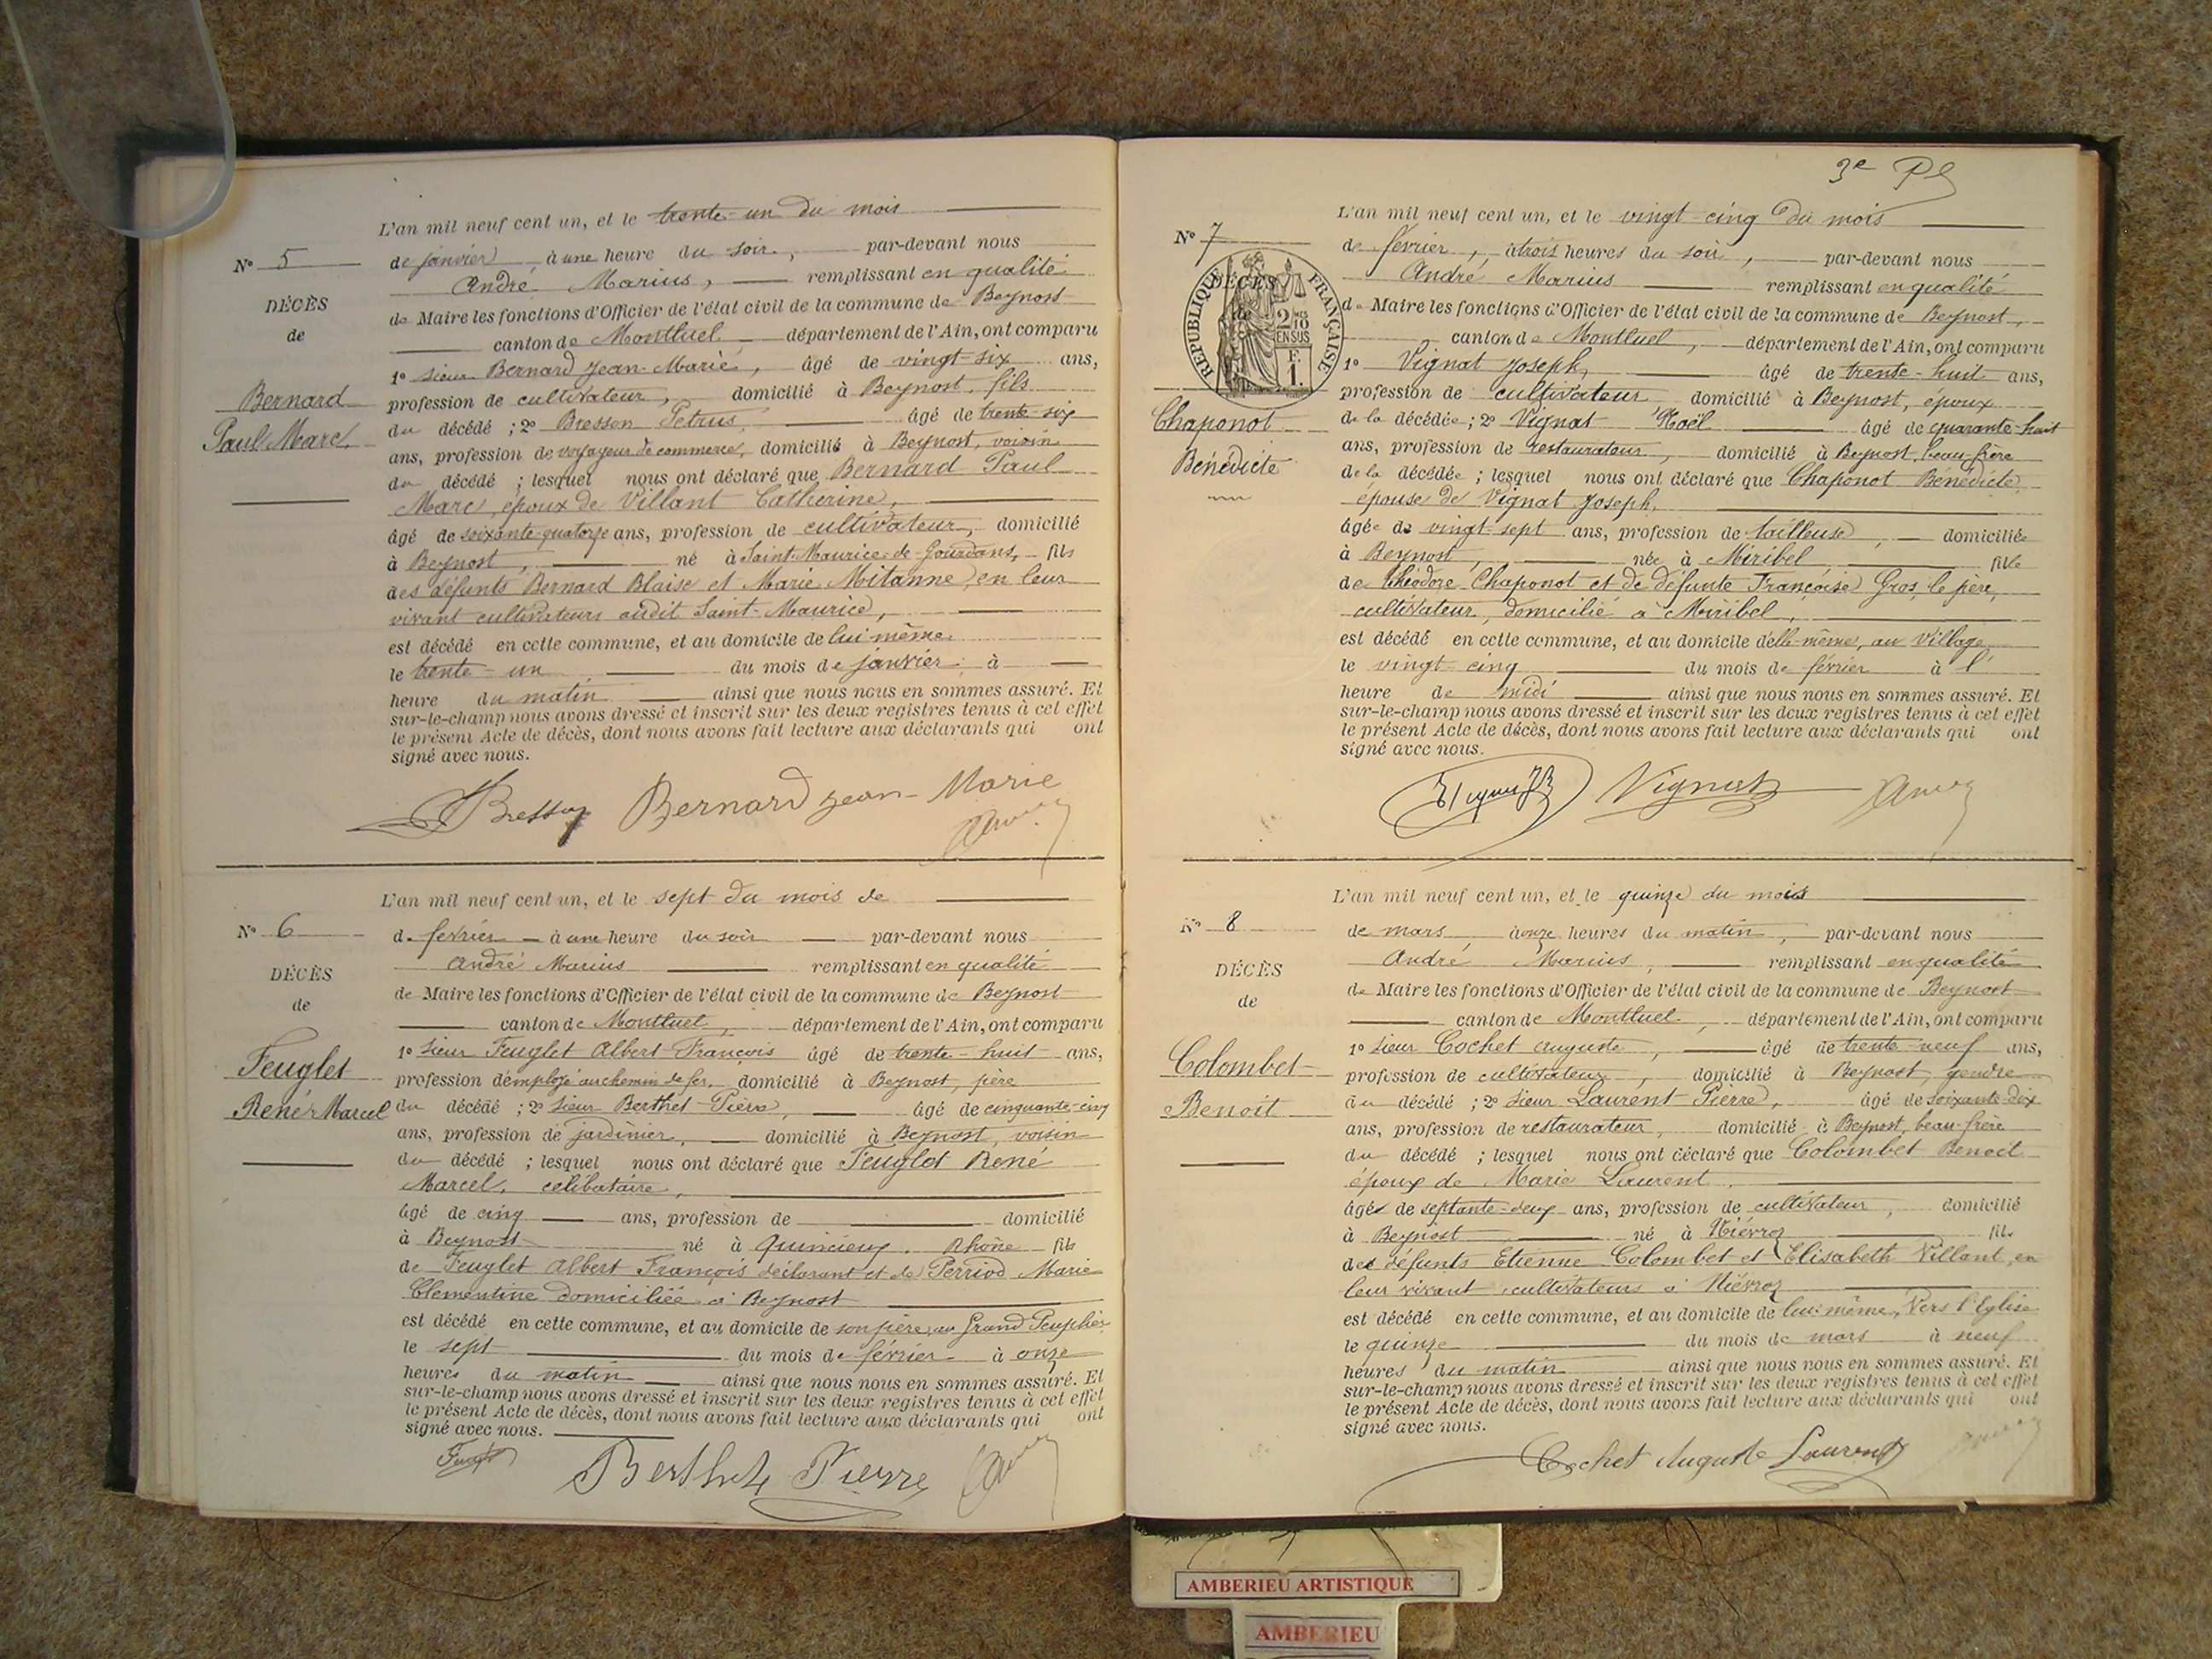 L'an mil neuf cent un, et le trente-un du mois
N° 5
de janvier à une heure du soir, par-devant nous
André Marius, remplissant en qualité
DÉCÈS
de Maire les fonctions d'Officier de l'état civil de la commune de Beynost
de
canton de Montluel, département de l'Ain, ont comparu
1° sieur Bernard Jean-Marie, âgé de vingt-six ans,
Bernard
profession de cultivateur, domicilié à Beynost, fils
Paul Marc
du décédé ; 2° Bresson Petrus, âgé de trente six
ans, profession de voyageur de commerce, domicilié à Beynost, voisin
du décédé ; lesquel nous ont déclaré que Bernard Paul
Marc, époux de Villant Catherine,
âgé de soixante-quatorze ans, profession de cultivateur, domicilié
à Beynost, né à Saint-Maurice-de-Gourdans, fils
des défunts Bernard Blaise et Marie Mitanne, en leur
vivant cultivateurs audit Saint-Maurice,
est décédé en cette commune, et au domicile de lui même
le trente-un du mois de janvier à
heure du matin ainsi que nous nous en sommes assuré. Et
sur-le-champ nous avons dressé et inscrit sur les deux registres tenus à cet effet
le présent Acte de décès, dont nous avons fait lecture aux déclarants qui ont
signé avec nous.
Bresson Bernard Jean-Marie
L'an mil neuf cent un, et le sept du mois de
N° 6
de février à une heure du soir par-devant nous
André Marius remplissant en qualité
DÉCÈS
de Maire les fonctions d'Officier de l'état civil de la commune de Beynost
de
canton de Montluel, département de l'Ain, ont comparu
1° sieur Feuglet Albert François âgé de trente-huit ans,
Feuglet
profession d'employé au chemin de fer, domicilié à Beynost, père
René Marcel
du décédé ; 2° sieur Berthet Pierre, âgé de cinquante-cinq
ans, profession de jardinier, domicilié à Beynost, voisin
du décédé ; lesquel nous ont déclaré que Feuglet René
Marcel, célibataire,
âgé de cinq ans, profession de domicilié
à Beynost né à Quincieux, Rhône fils
de Feuglet Albert François déclarant et de Perriod Marie
Clementine domiciliée à Beynost
est décédé en cette commune, et au domicile de son père, au Grand Peuplier
le sept du mois de février à onze
heures du matin ainsi que nous nous en sommes assuré. Et
sur-le-champ nous avons dressé et inscrit sur les deux registres tenus à cet effet
le présent Acte de décès, dont nous avons fait lecture aux déclarants qui ont
signé avec nous.
Berthet Pierre
3e
L'an mil neuf cent un, et le vingt-cinq du mois
N° 7
de février, à trois heures du soir, par-devant nous
André Marius remplissant en qualité
RÉPUBLIQUE FRANÇAISE
DÉCÈS
de
2/10 EN SUS
F. 1.
de Maire les fonctions d'Officier de l'état civil de la commune de Beynost,
canton de Montluel, département de l'Ain, ont comparu
1° Vignat Joseph, âgé de trente-huit ans,
profession de cultivateur domicilié à Beynost, époux
Chaponot
de la décédée ; 2° Vignat Noël âgé de quarante-huit
ans, profession de restaurateur, domicilié à Beynost, beau-frère
Bénédicte
de la décédée ; lesquel nous ont déclaré que Chaponot Bénédicte,
épouse de Vignat Joseph,
âgée de vingt-sept ans, profession de tailleuse, domiciliée
à Beynost, née à Miribel fille
de Théodore Chaponot et de défunte Françoise Gros, le père,
cultivateur, domicilié à Miribel,
est décédé en cette commune, et au domicile d'elle-même, au Village
le vingt-cinq du mois de février à l'
heure de midi ainsi que nous nous en sommes assuré. Et
sur-le-champ nous avons dressé et inscrit sur les deux registres tenus à cet effet
le présent Acte de décès, dont nous avons fait lecture aux déclarants qui ont
signé avec nous.
Vignat
L'an mil neuf cent un, et le quinze du mois
N° 8
de mars à onze heures du matin, par-devant nous
André Marius, remplissant en qualité
DÉCÈS
de Maire les fonctions d'Officier de l'état civil de la commune de Beynost
de
canton de Montluel, département de l'Ain, ont comparu
1° sieur Cochet Auguste, âgé de trente-neuf ans,
Colombet
profession de cultivateur, domicilié à Beynost, gendre
Benoit
du décédé ; 2° sieur Laurent Pierre, âgé de soixante-dix
ans, profession de restaurateur, domicilié à Beynost, beau-frère
du décédé ; lesquel nous ont déclaré que Colombet Benoit
époux de Marie Laurent.
âgé de septante-deux ans, profession de cultivateur, domicilié
à Beynost né à Niévroz fils
des défunts Etienne Colombet et Elisabeth Villant, en
leur vivant cultivateurs à Niévroz
est décédé en cette commune, et au domicile de lui-même, Vers l'Eglise
le quinze du mois de mars à neuf
heures du matin ainsi que nous nous en sommes assuré. Et
sur-le-champ nous avons dressé et inscrit sur les deux registres tenus à cet effet
le présent Acte de décès, dont nous avons fait lecture aux déclarants qui ont
signé avec nous.
Cochet Auguste Laurent
AMBERIEU ARTISTIQUE
AMBERIEU